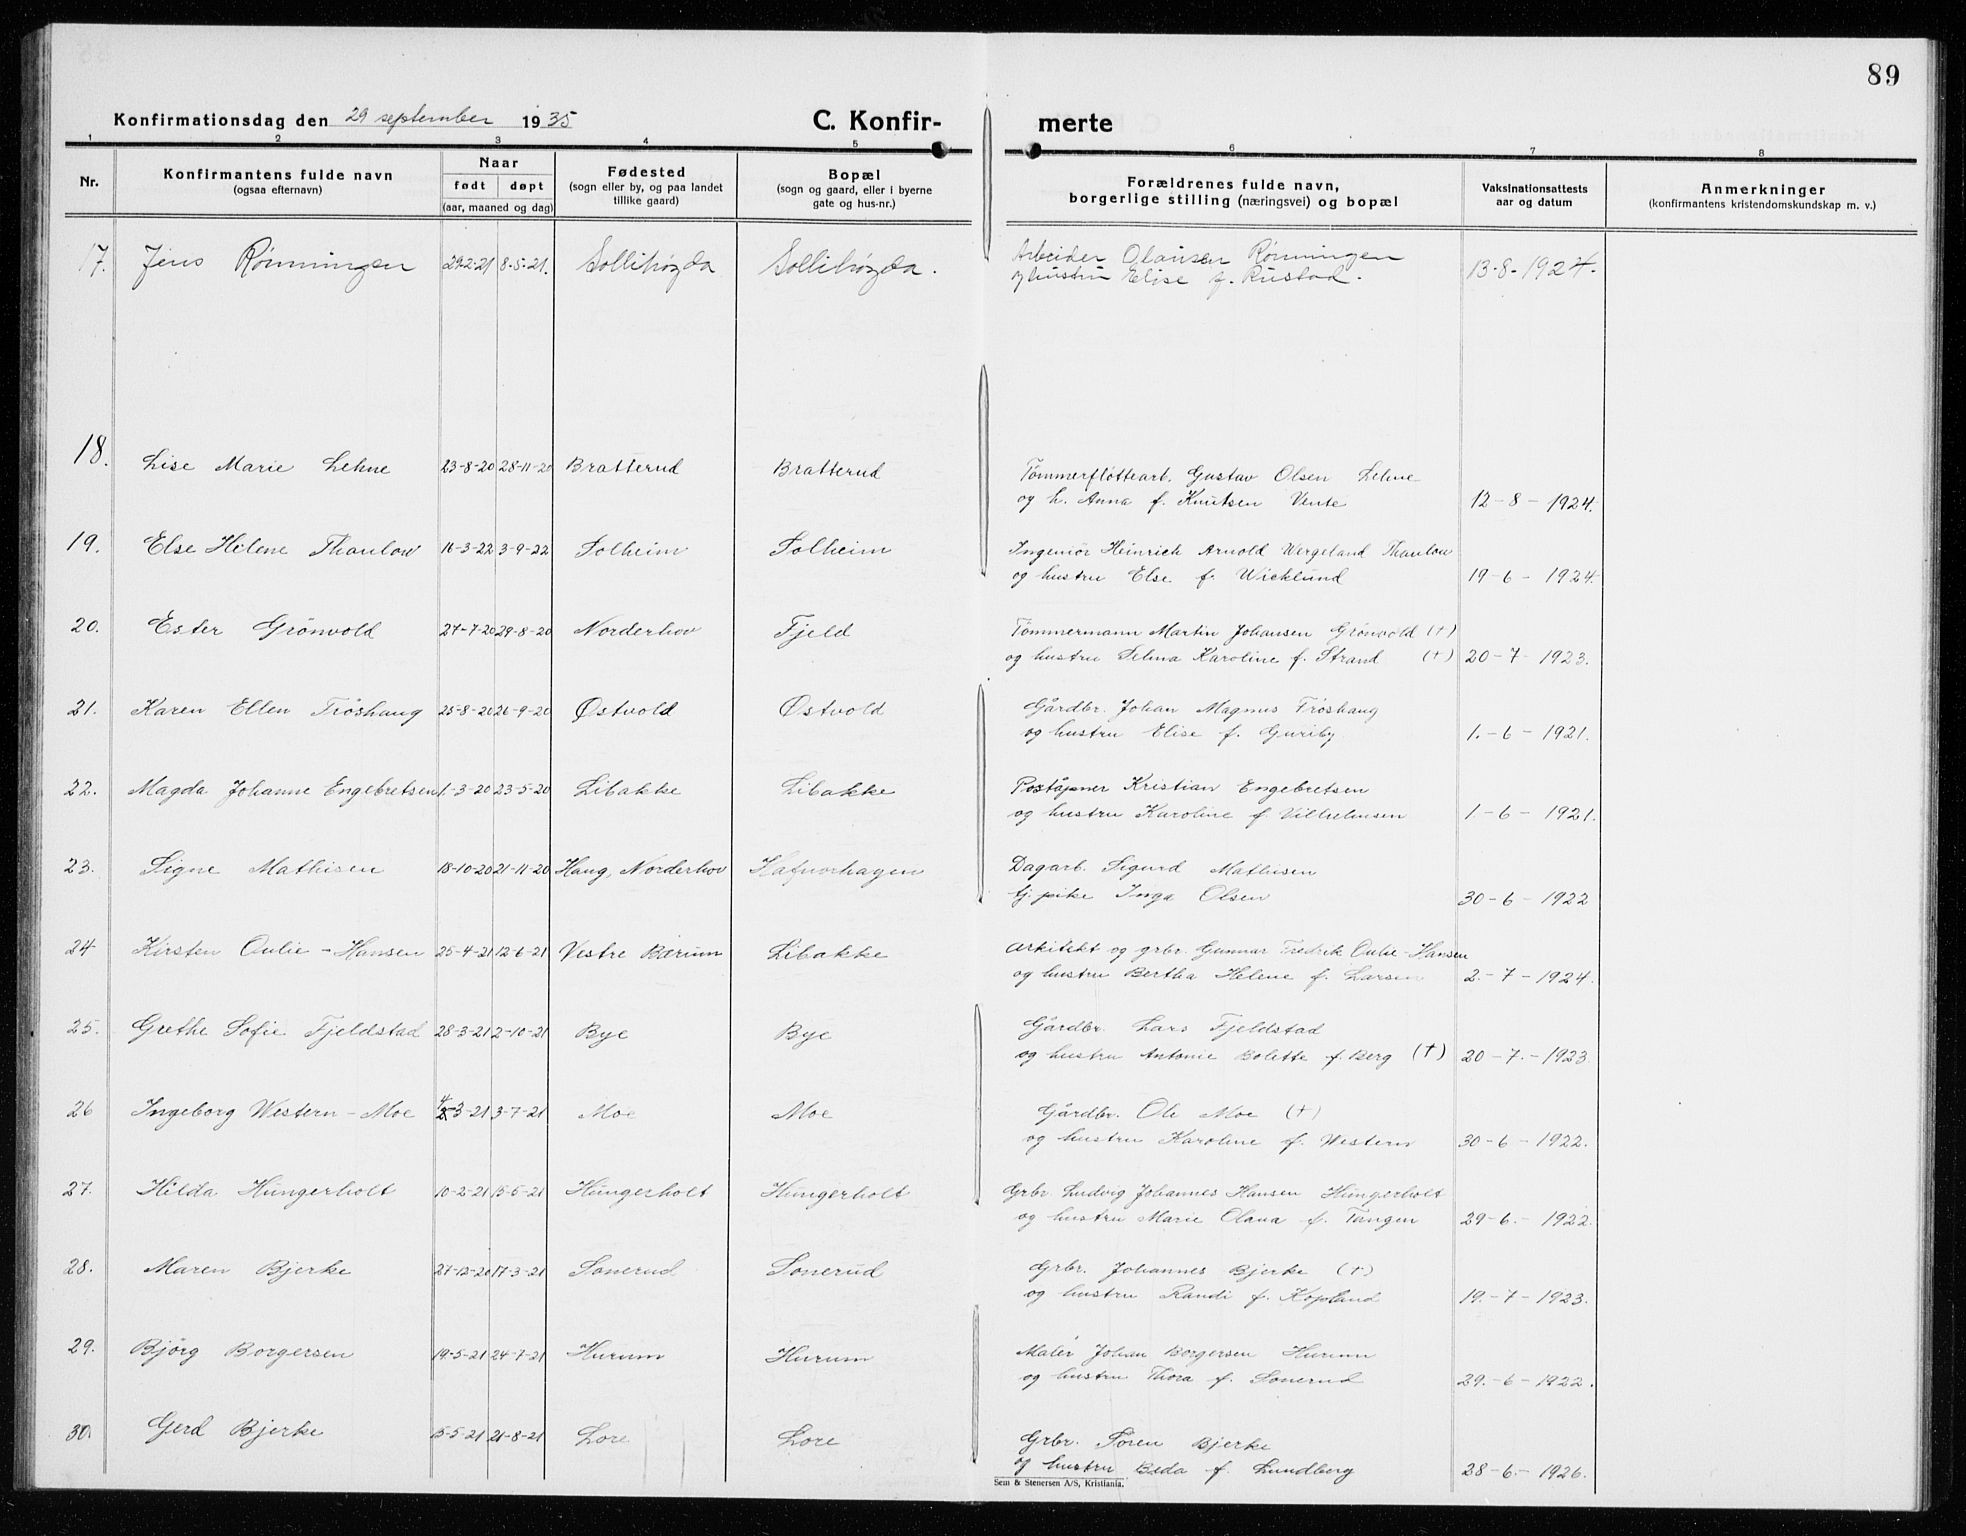 89
Konfirmationsdag den 29 september 1935 C. Konfir- merte
1 2 3 4 5 6 7 8
Nr. Konfirmantens fulde navn (ogsaa efternavn) Naar født døpt (aar, maaned og dag) Fødested (sogn eller by, og paa landet tillike gaard) Bopæl (sogn og gaard, eller i byerne gate og hus-nr.) Forældrenes fulde navn, borgerlige stilling (næringsvei) og bopæl Vaksinationsattests aar og datum Anmerkninger (konfirmantens kristendomskundskap m. v.)
17. Jens Rønningen 29-2-21 8-5-21. Sollihøgda Sollihøgda. Arbeider Olausen Rønningen
og hustru Elise f. Rustad. 13-8-1924.
18. Lise Marie Lehne 23-8-20 28-11-20 Bratterud Bratterud Tømmerfløttearb. Gustav Olsen Lehne
og h. Anna f. Knutsen Vente 12-8-1924.
19. Else Helene Thaulow 16-3-22 3-9-22 Solheim Solheim Ingeniør Heinrich Arnold Wergeland Thaulow
og hustru Else f. Wicklund 19-6-1924
20. Ester Grönvold 27-7-20 29-8-20 Norderhov Fjeld Tömmermann Martin Johansen Grönvold (+)
og hustru Selma Karoline f. Strand (+) 20-7-1923.
21. Karen Ellen Fröshaug 25-8-20 26-9-20 Østvold Østvold Gårdbr. Johan Magnus Fröshaug
og hustru Elise f. Guriby 1.-6-1921.
22. Magda Johanne Engebretsen 1-3-20 23-5-20 Libakke Libakke Poståpner Kristian Engebretsen
og hustru Karoline f. Vilhelmsen 1-6-1921.
23. Signe Mathisen 18-10-20 21-11-20 Haug, Norderhov Hafnorhagen Dagarb. Sigurd Mathisen
tj. pike Inga Olsen 30-6-1922
24 Kirsten Oulie-Hansen 25-4-21 12-6-21 Vestre Bærum Libakke Arkitekt og grbr. Gunnar Fredrik Oulie-Hansen
og hustru Bertha Helene f. Larsen 2.-7-1924.
25. Grethe Sofie Fjeldstad 28-3-21 2-10-21 Bye Bye Gårdbr. Lars Fjeldstad
og hustru Antonie Bolette f. Berg (+) 20-7.-1923
26 Ingeborg Western-Moe 4-3-21 3-7-21 Moe Moe Gårdbr. Ole Moe (+)
og hustru Karoline f. Western 30-6-1922.
27. Hilda Hungerholt 10-2-21 15-5-21 Hungerholt Hungerholt Grbr. Ludvig Johannes Hansen Hungerholt
og hustru Marie Olava f. Tangen 29-6.-1922.
28. Maren Bjerke 27-12-20 17-3-21 Sonerud Sonerud Grbr. Johannes Bjerke (+)
og hustru Randi f. Kopland 19.-7-1923.
29. Bjørg Borgersen 19-5-21 24-7-21 Hurum Hurum Maler Johan Borgersen Hurum
og hustru Thora f. Sonerud 29.-6-1922.
30. Gerd Bjerke 15-5-21 21-8-21 Lore Lore Grbr. Sören Bjerke
og hustru Beda f. Lundberg 28-6.-1926.
Sem & Stenersen A/S, Kristiania.